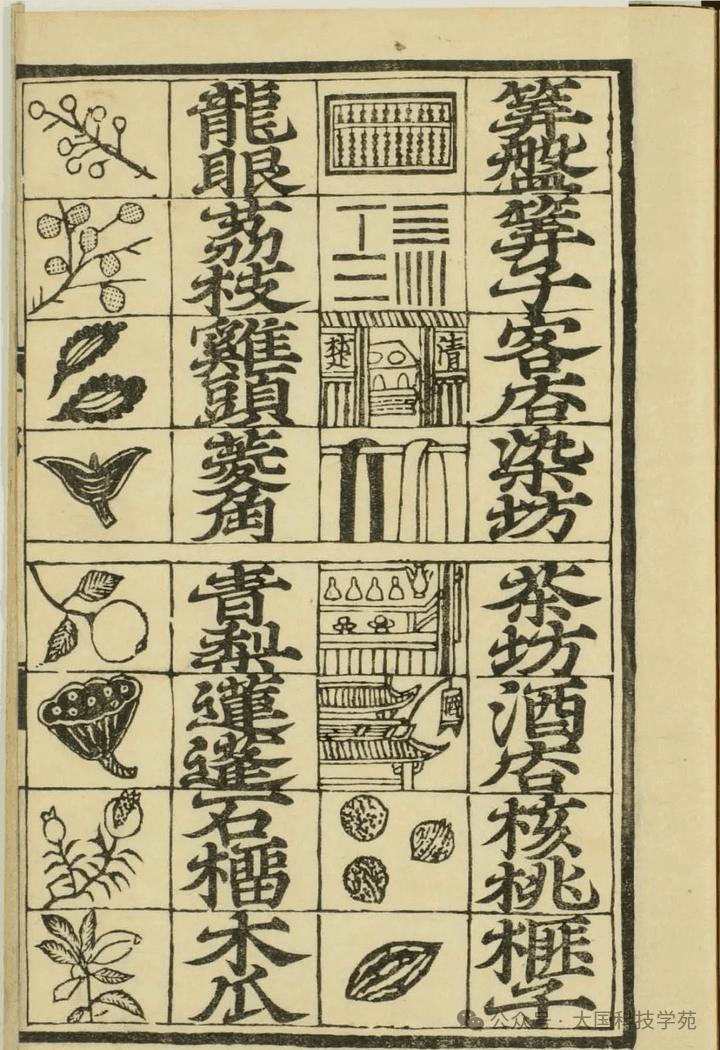 筭盤
筭子
客店
染坊
茶坊
酒店
核桃
榧子
清
楚
龍眼
荔枝
雞頭
菱角
青梨
蓮蓬
石榴
木瓜
公众号 · 大国科技学苑